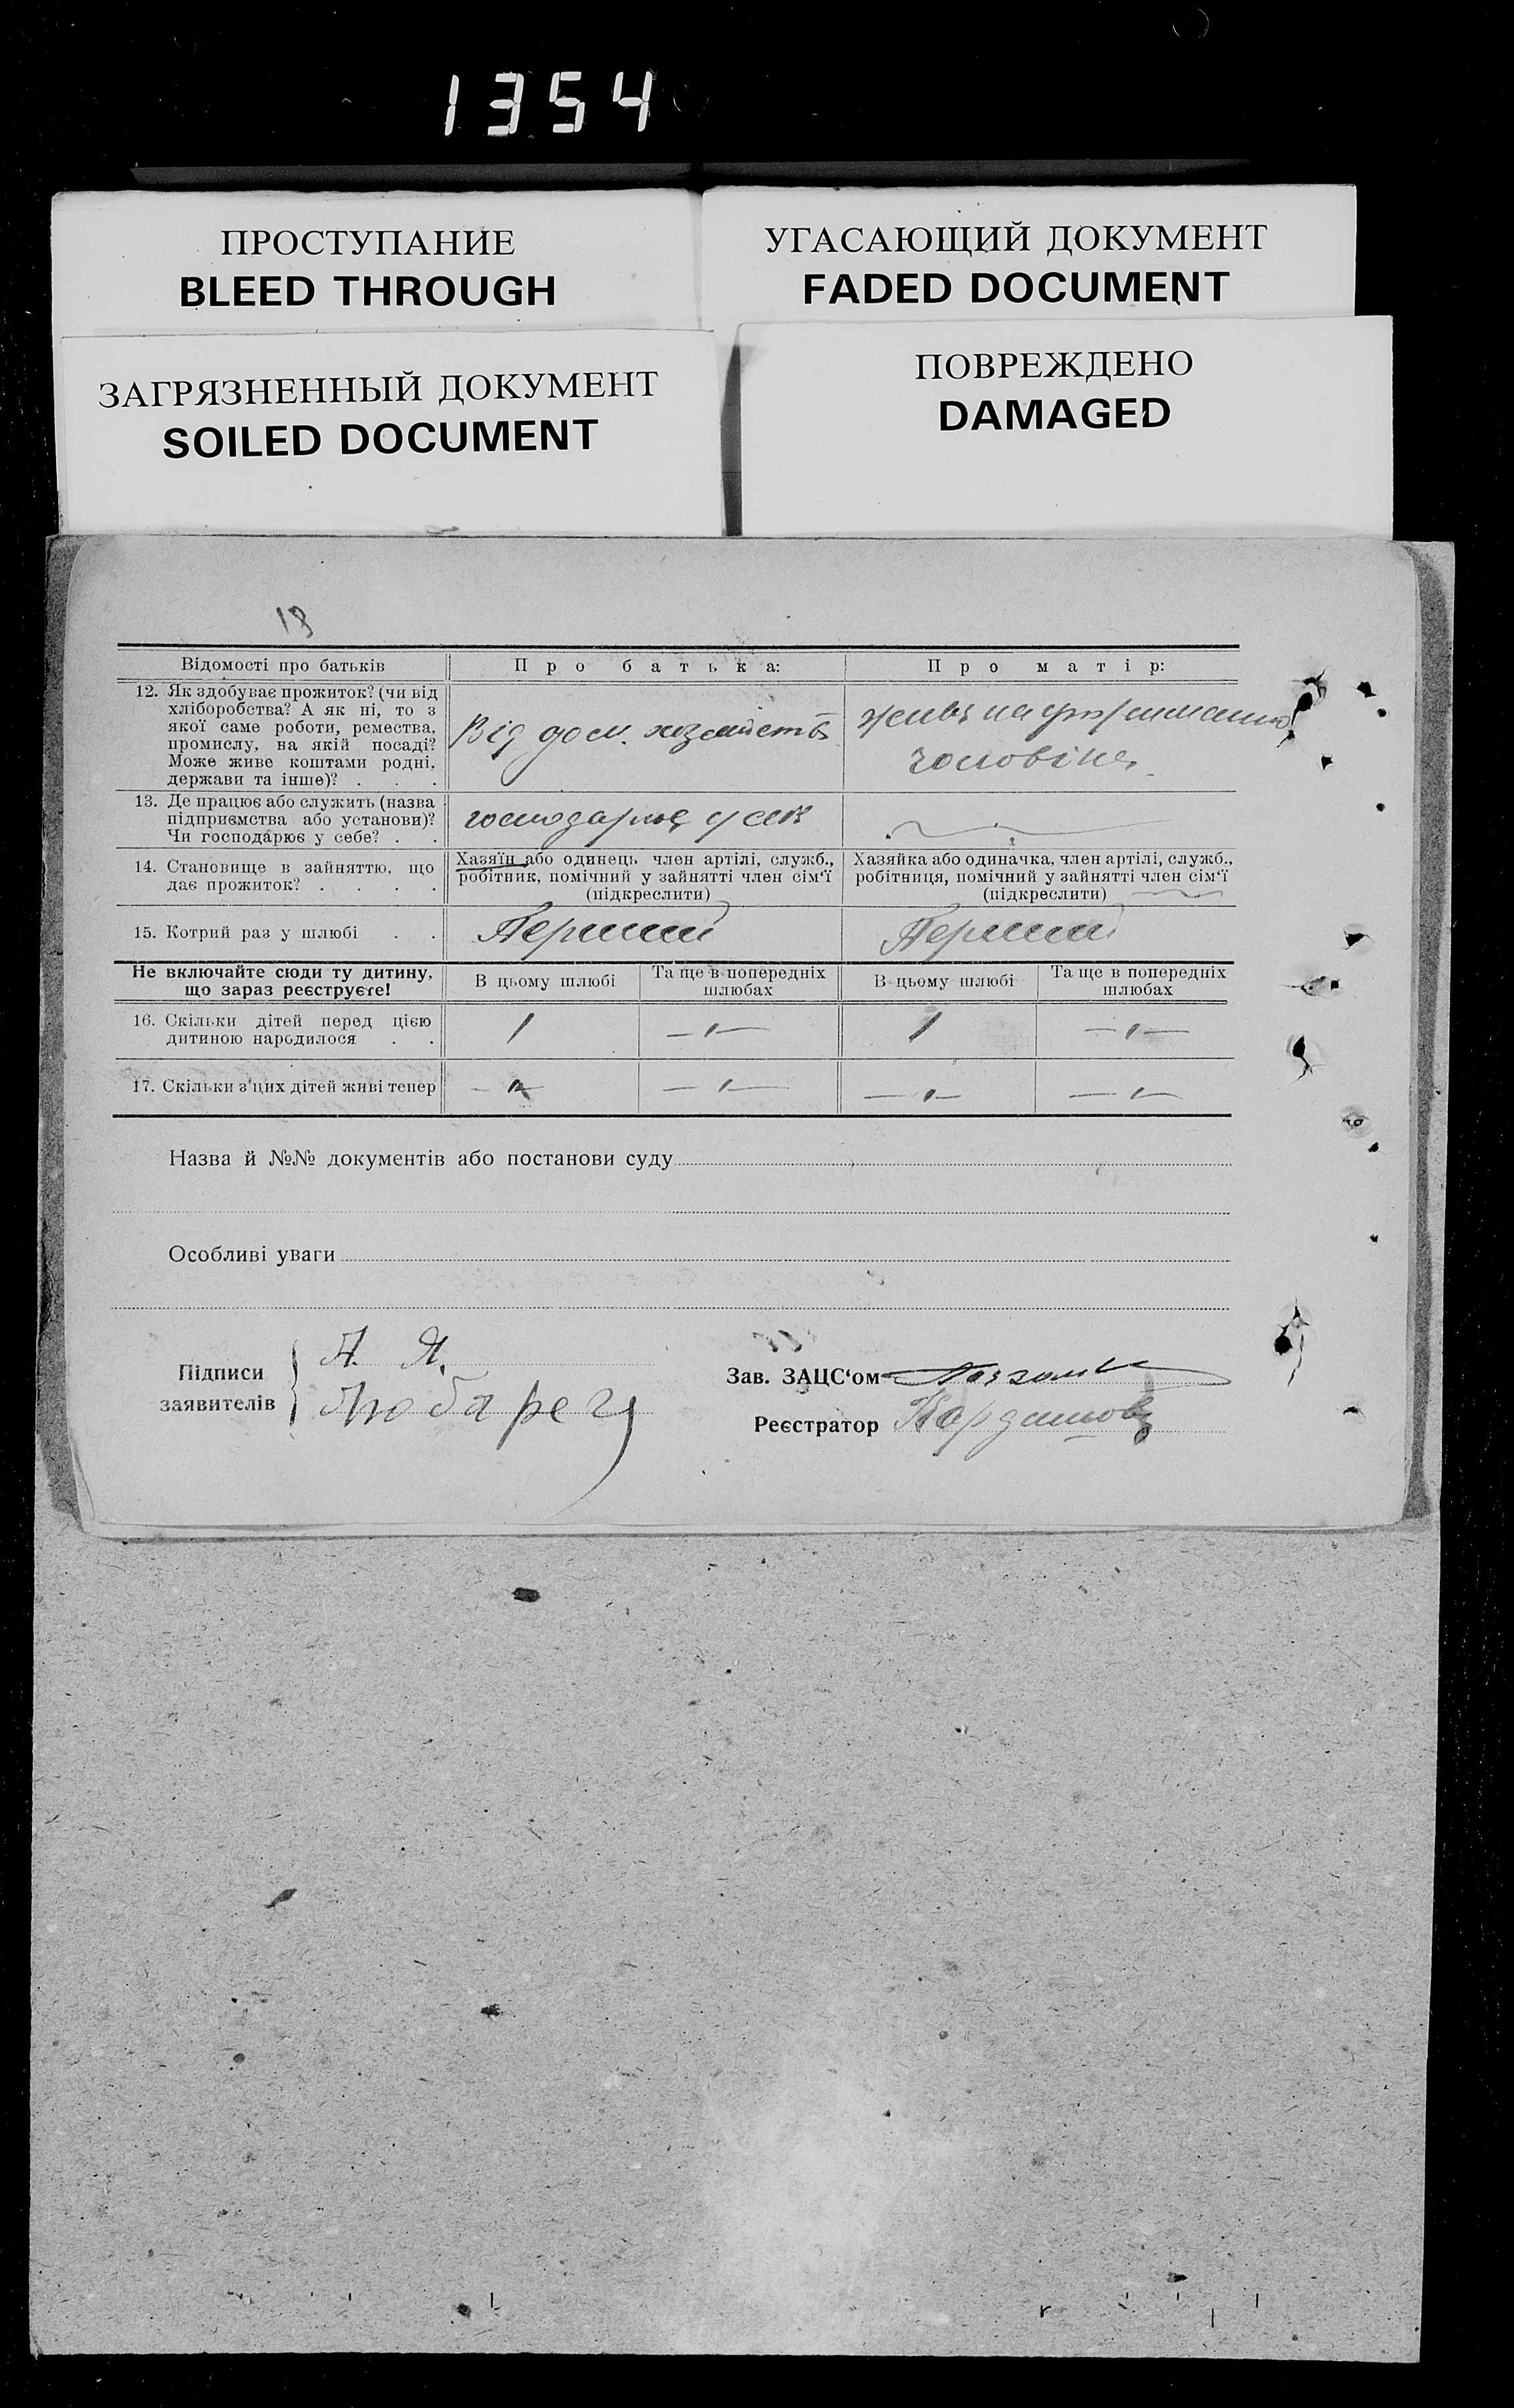 1354
ПРОСТУПАНИЕ
BLEED THROUGH
УГАСАЮЩИЙ ДОКУМЕНТ
FADED DOCUMENT
ЗАГРЯЗНЕННЫЙ ДОКУМЕНТ
SOILED DOCUMENT
ПОВРЕЖДЕНО
DAMAGED
18
Відомості про батьків
Про батька:
Про матір:
12. Як здобуває прожиток? (чи від
хліборобства? А як ні, то з
якої саме роботи, ремества,
промислу, на якій посаді?
Може живе коштами родні,
держави та інше)? . . .
Від дом.
живе на
чоловіка
13. Де працює або служить (назва
підприємства або установи)?
Чи господарює у себе? . .
господарює у
14. Становище в зайняттю, що
дає прожиток? . . . .
Хазяїн або одинець член артілі, служб.,
робітник, помічний у зайнятті член сім'ї
(підкреслити)
Хазяйка або одиначка, член артілі, служб.,
робітниця, помічний у зайнятті член сім'ї
(підкреслити)
15. Котрий раз у шлюбі . .
Перший
Перший
Не включайте сюди ту дитину,
що зараз реєструєте!
В цьому шлюбі
Та ще в попередніх
шлюбах
В цьому шлюбі
Та ще в попередніх
шлюбах
16. Скільки дітей перед цією
дитиною народилося . .
1
—"—
1
—"—
17. Скільки з'цих дітей живі тепер
—"—
—"—
—"—
Назва й №№ документів або постанови суду
Особливі уваги
Підписи
заявителів
А. Я.
Любарец
Зав. ЗАЦС'ом
Реєстратор